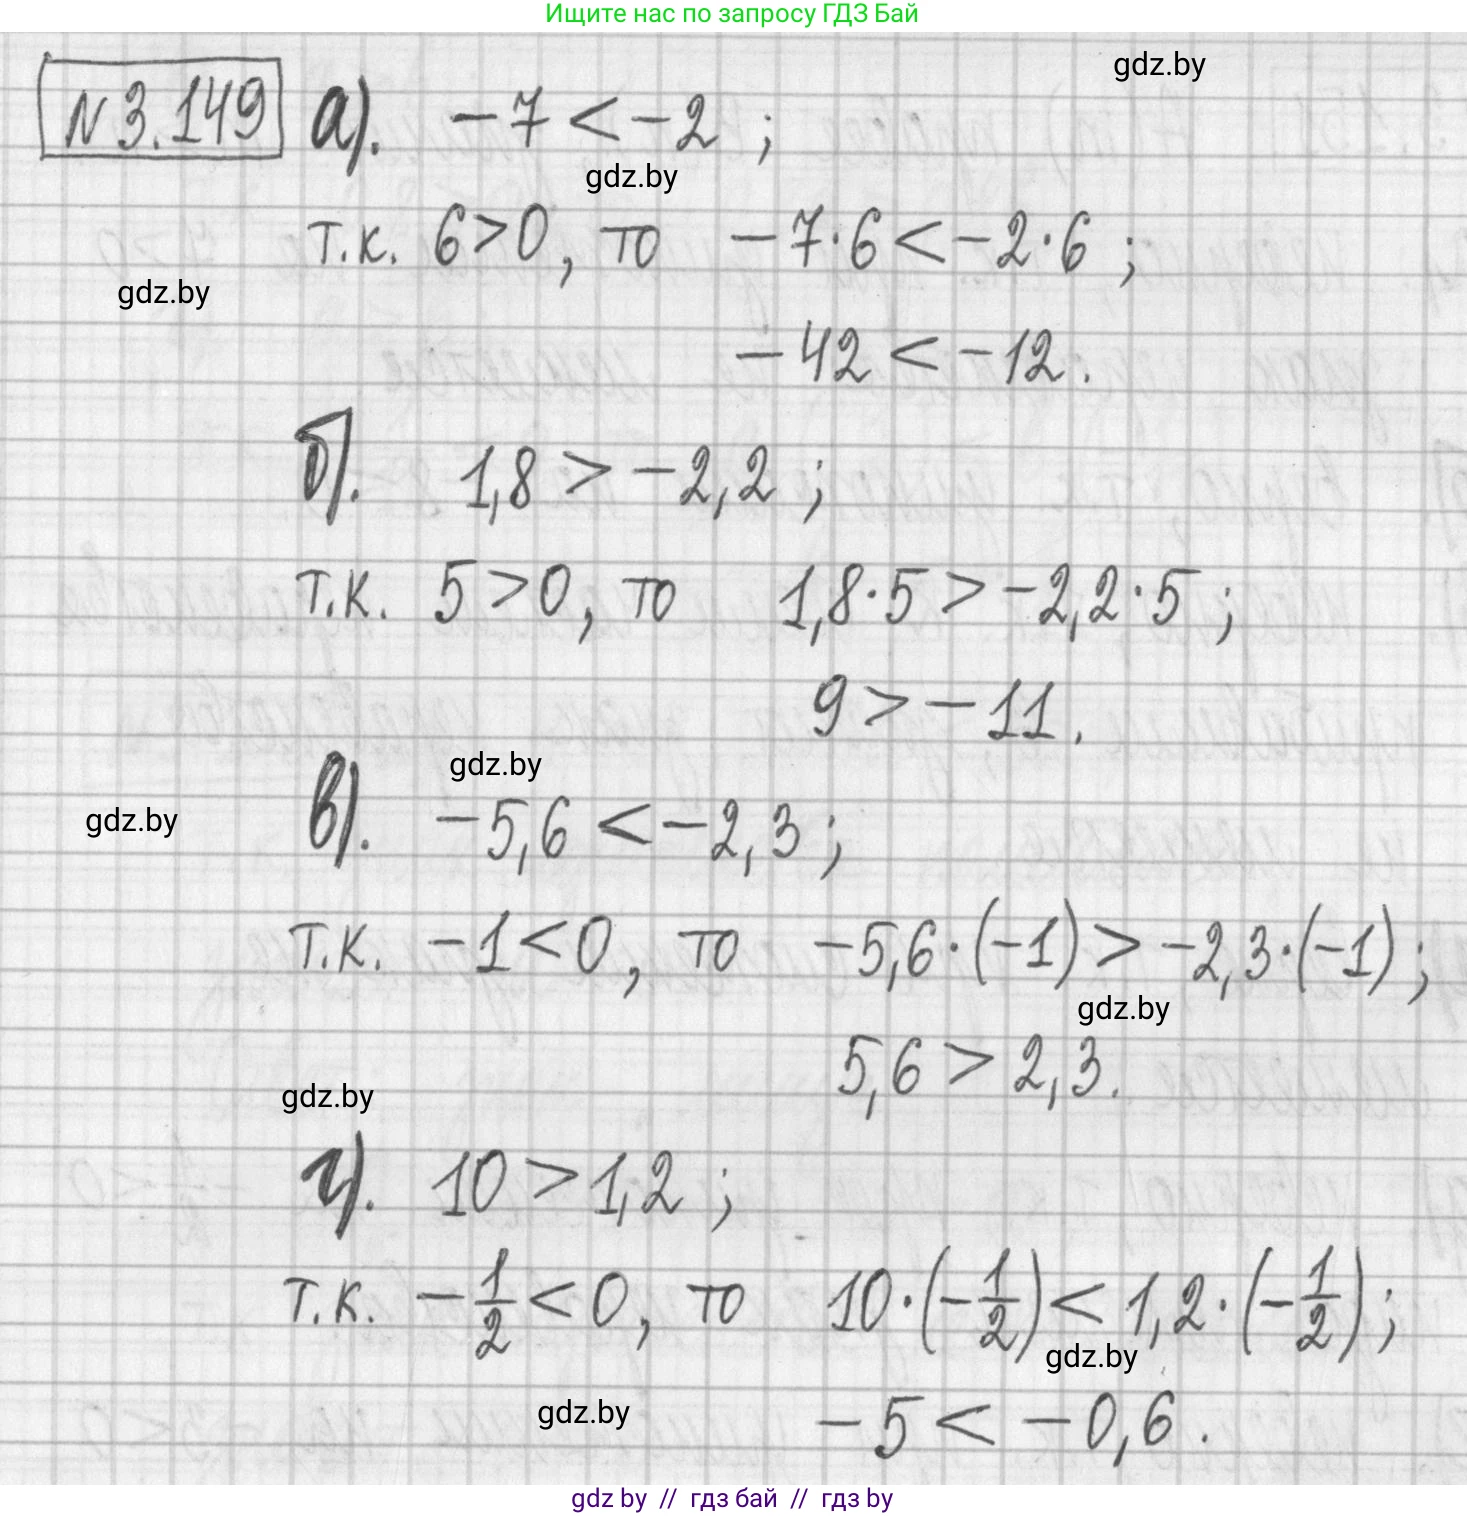 Ищите нас по запросу ГДЗ Бай
gdz.by
№ 3.149 а). −7 < −2 ;
gdz.by
т.к. 6 > 0, то −7·6 < −2·6 ;
gdz.by
−42 < −12.
б). 1,8 > −2,2 ;
т.к. 5 > 0, то 1,8·5 > −2,2·5 ;
9 > −11.
gdz.by
gdz.by
в). −5,6 < −2,3 ;
т.к. −1 < 0, то −5,6·(−1) > −2,3·(−1) ;
gdz.by
5,6 > 2,3.
gdz.by
г). 10 > 1,2 ;
т.к. −1/2 < 0, то 10·(−1/2) < 1,2·(−1/2) ;
gdz.by
gdz.by
−5 < −0,6.
gdz by // гдз бай // гдз by